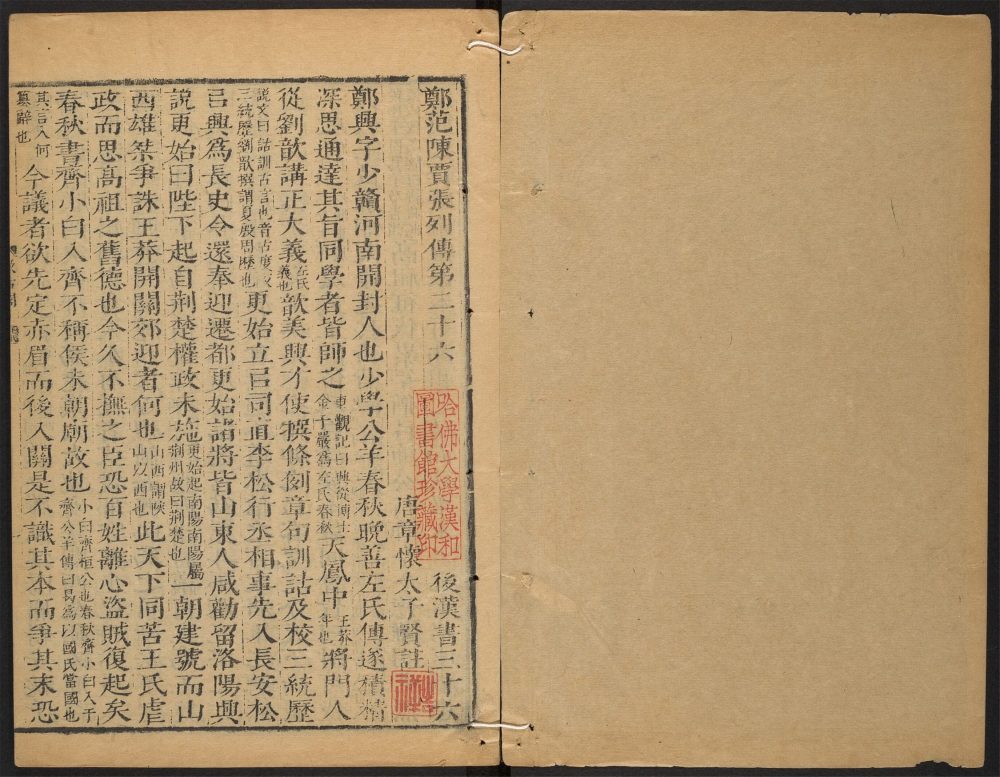 鄭范陳賈張列傳第二十六 後漢書三十六
唐章懷太子賢註
哈佛大學漢和
圖書館珍藏印
鄭興字少贛河南開封人也少學公羊春秋晚善左氏傳遂積精
深思通達其旨同學者皆師之東觀記曰興從博士金子嚴為左氏春秋天鳳中王莽年也將門人
從劉歆講正大義左氏義也歆美興才使撰條例章句訓詁及校三統歷
說文曰詁訓古言也音古度反三統歷劉歆撰謂夏殷周歷也更始立㠯司直李松行丞相事先入長安松
㠯興爲長史令還奉迎遷都更始諸將皆山東人咸勸留洛陽興
說更始曰陛下起自荆楚權政未施更始起南陽南陽屬荆州故曰荆楚也一朝建號而山
西雄桀爭誅王莽開關郊迎者何也山西謂陝山以西也此天下同苦王氏虐
政而思高祖之舊德也今久不撫之臣恐百姓離心盜賊復起矣
春秋書齊小白入齊不稱侯未朝廟故也小白齊桓公也春秋齊小白入于齊公羊傳曰曷爲以國氏當國也
其言入何簒辭也今議者欲先定赤眉而後入關是不識其本而爭其末恐